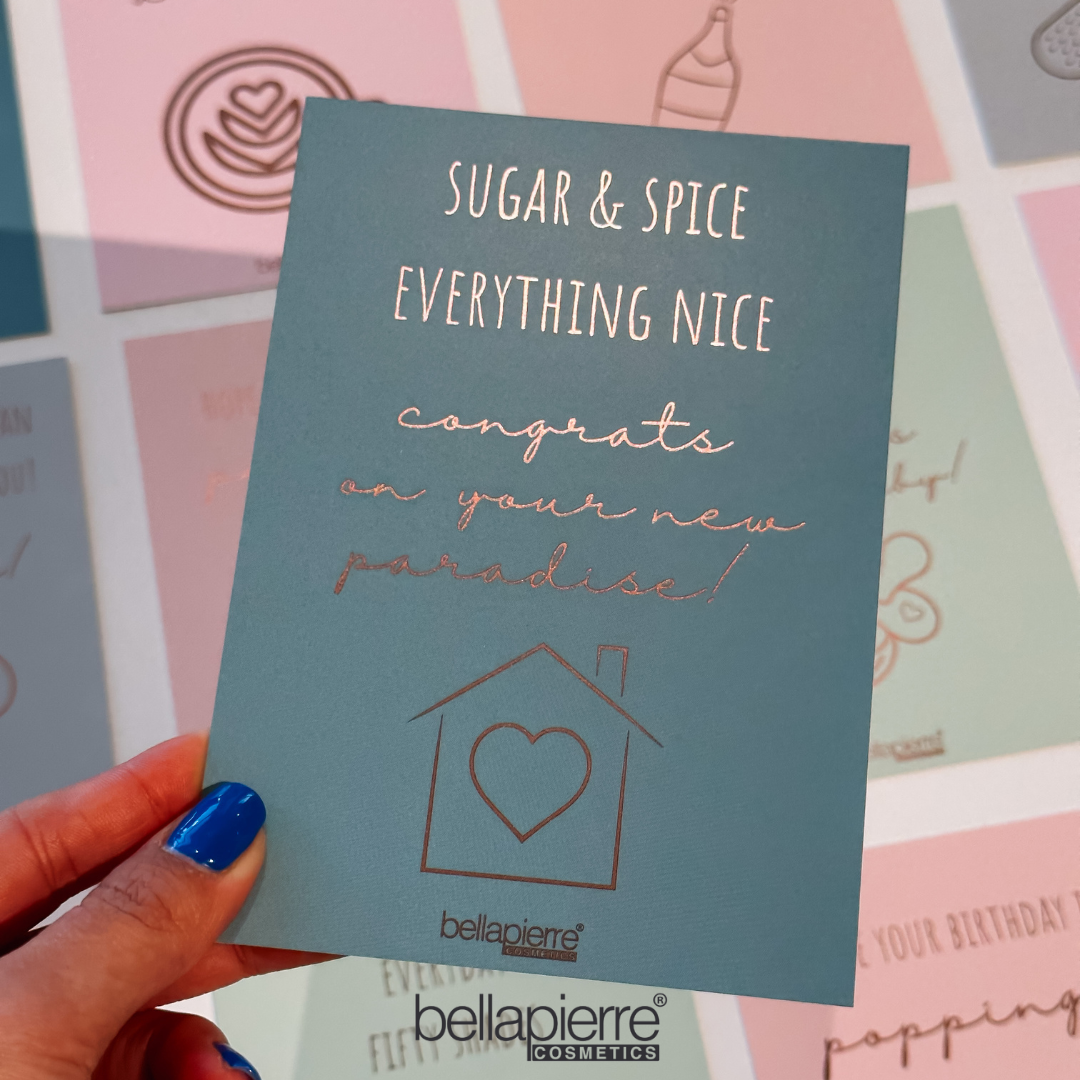 SUGAR & SPICE
EVERYTHING NICE
congrats
on your new
paradise!
bellapierre®
COSMETICS
YOUR BIRTHDAY
popping
FIFTY SHADES
bellapierre®
COSMETICS